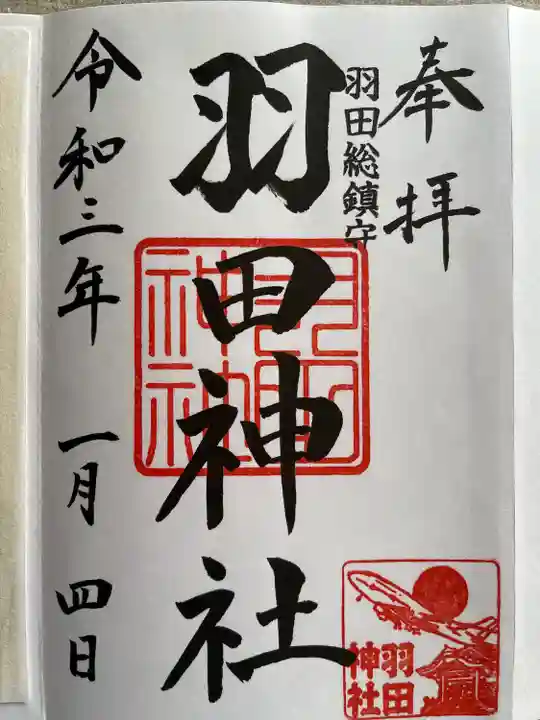 奉拝
羽田総鎮守
羽田神社
羽田神社
令和三年 一月 四日
羽田神社